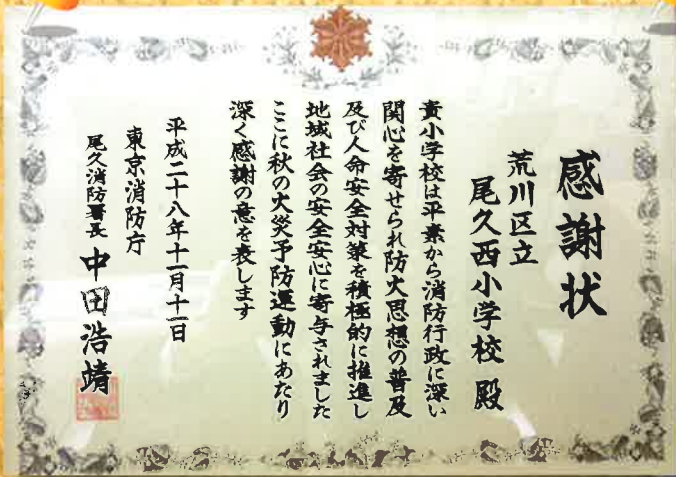 感謝状
荒川区立
尾久西小学校 殿
貴小学校は平素から消防行政に深い
関心を寄せられ防火思想の普及
及び人命安全対策を積極的に推進し
地域社会の安全安心に寄与されました
ここに秋の火災予防運動にあたり
深く感謝の意を表します
平成二十八年十一月十一日
東京消防庁
尾久消防署長 中田浩靖